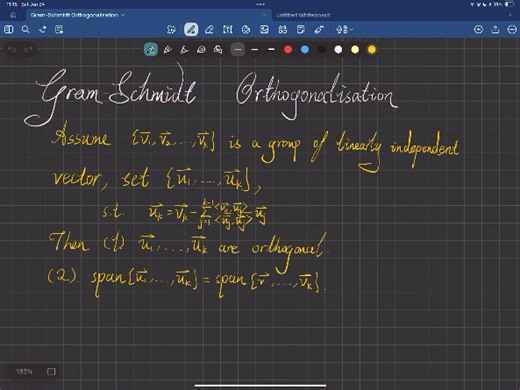 11:15 Sat Jan 24
Gram-Schmidt Orthogonalisation
Untitled Whiteboard
Gram-Schmidt Orthogonalisation
Assume {v⃗₁, v⃗₂, ..., v⃗ₖ} is a group of linearly independent
vector, set {u⃗₁, ..., u⃗ₖ},
s.t. u⃗ₖ = v⃗ₖ - ∑ⱼ₌₁ᵏ⁻¹ <v⃗ₖ, u⃗ⱼ>/<u⃗ⱼ, u⃗ⱼ> u⃗ⱼ
Then (1) u⃗₁, ..., u⃗ₖ are orthogonal.
(2). span{u⃗₁, ..., u⃗ₖ} = span{v⃗, ..., v⃗ₖ}.
183%